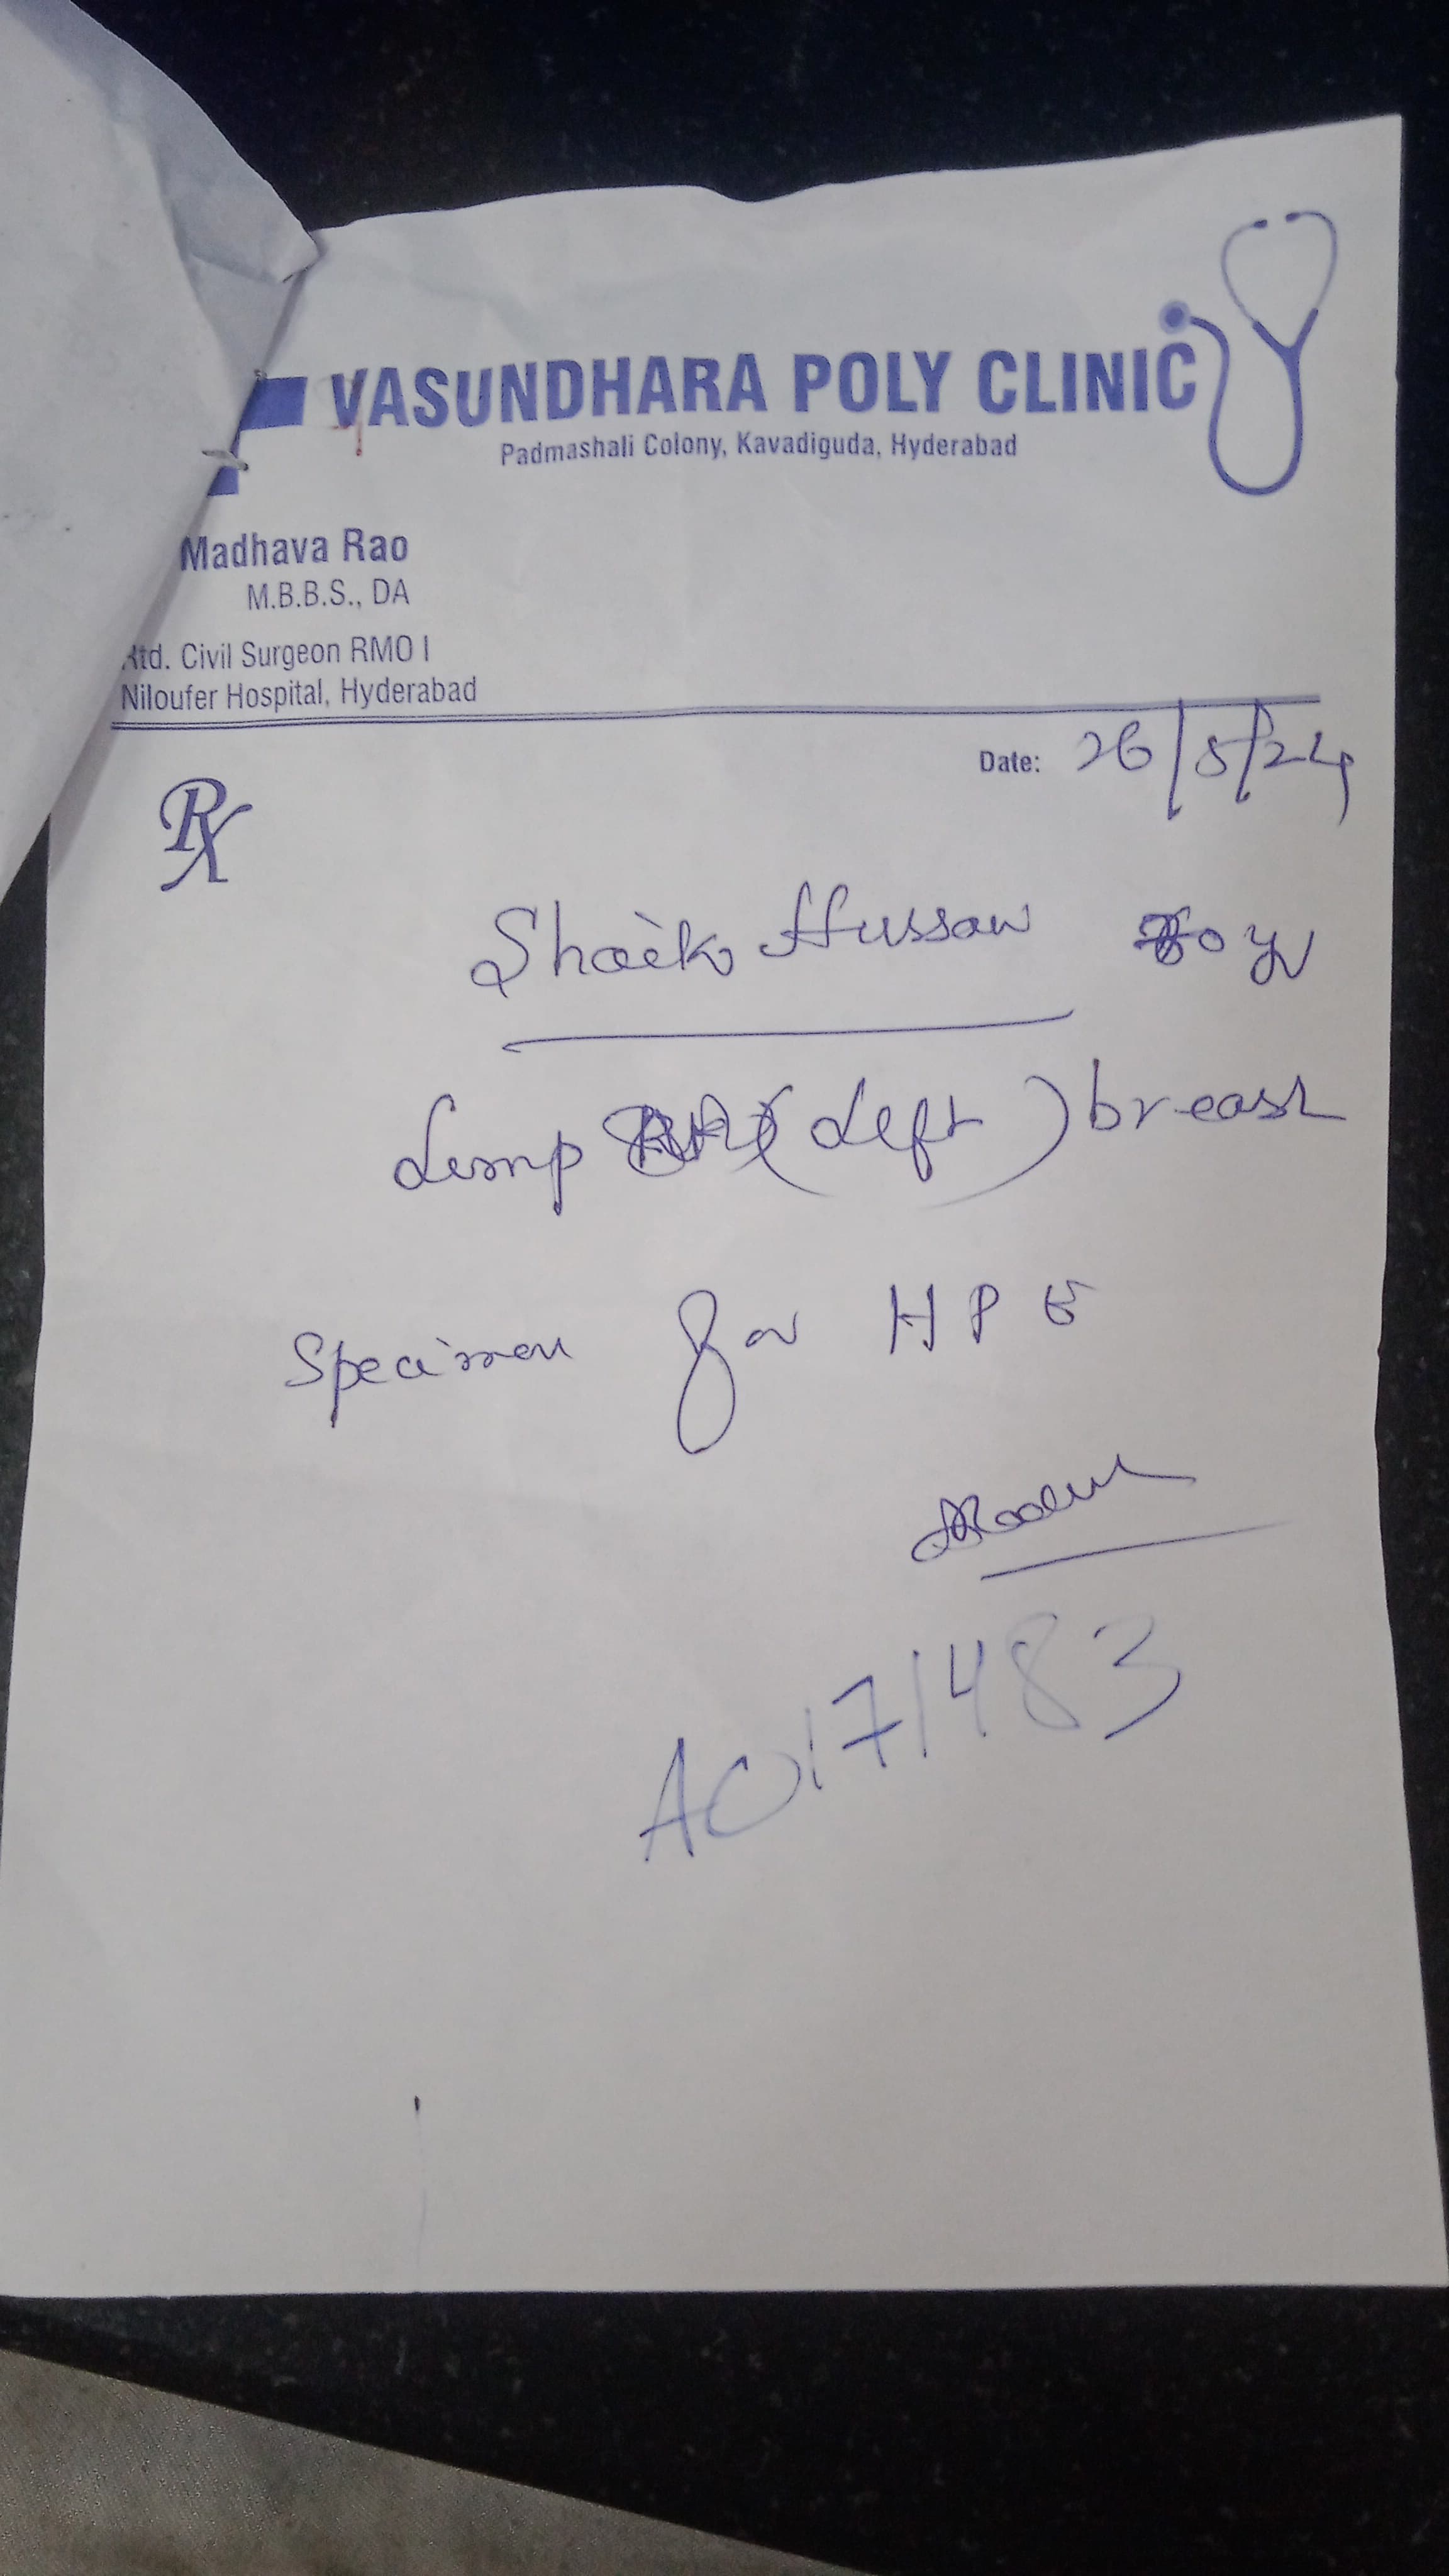 VASUNDHARA POLY CLINIC
Padmashali Colony, Kavadiguda, Hyderabad
Madhava Rao
M.B.B.S., DA
Rtd. Civil Surgeon RMO I
Niloufer Hospital, Hyderabad
Date: 26/5/24
Rx
Shaik Hussain
Lump (Left) breast
Specimen for HPE
A0171483